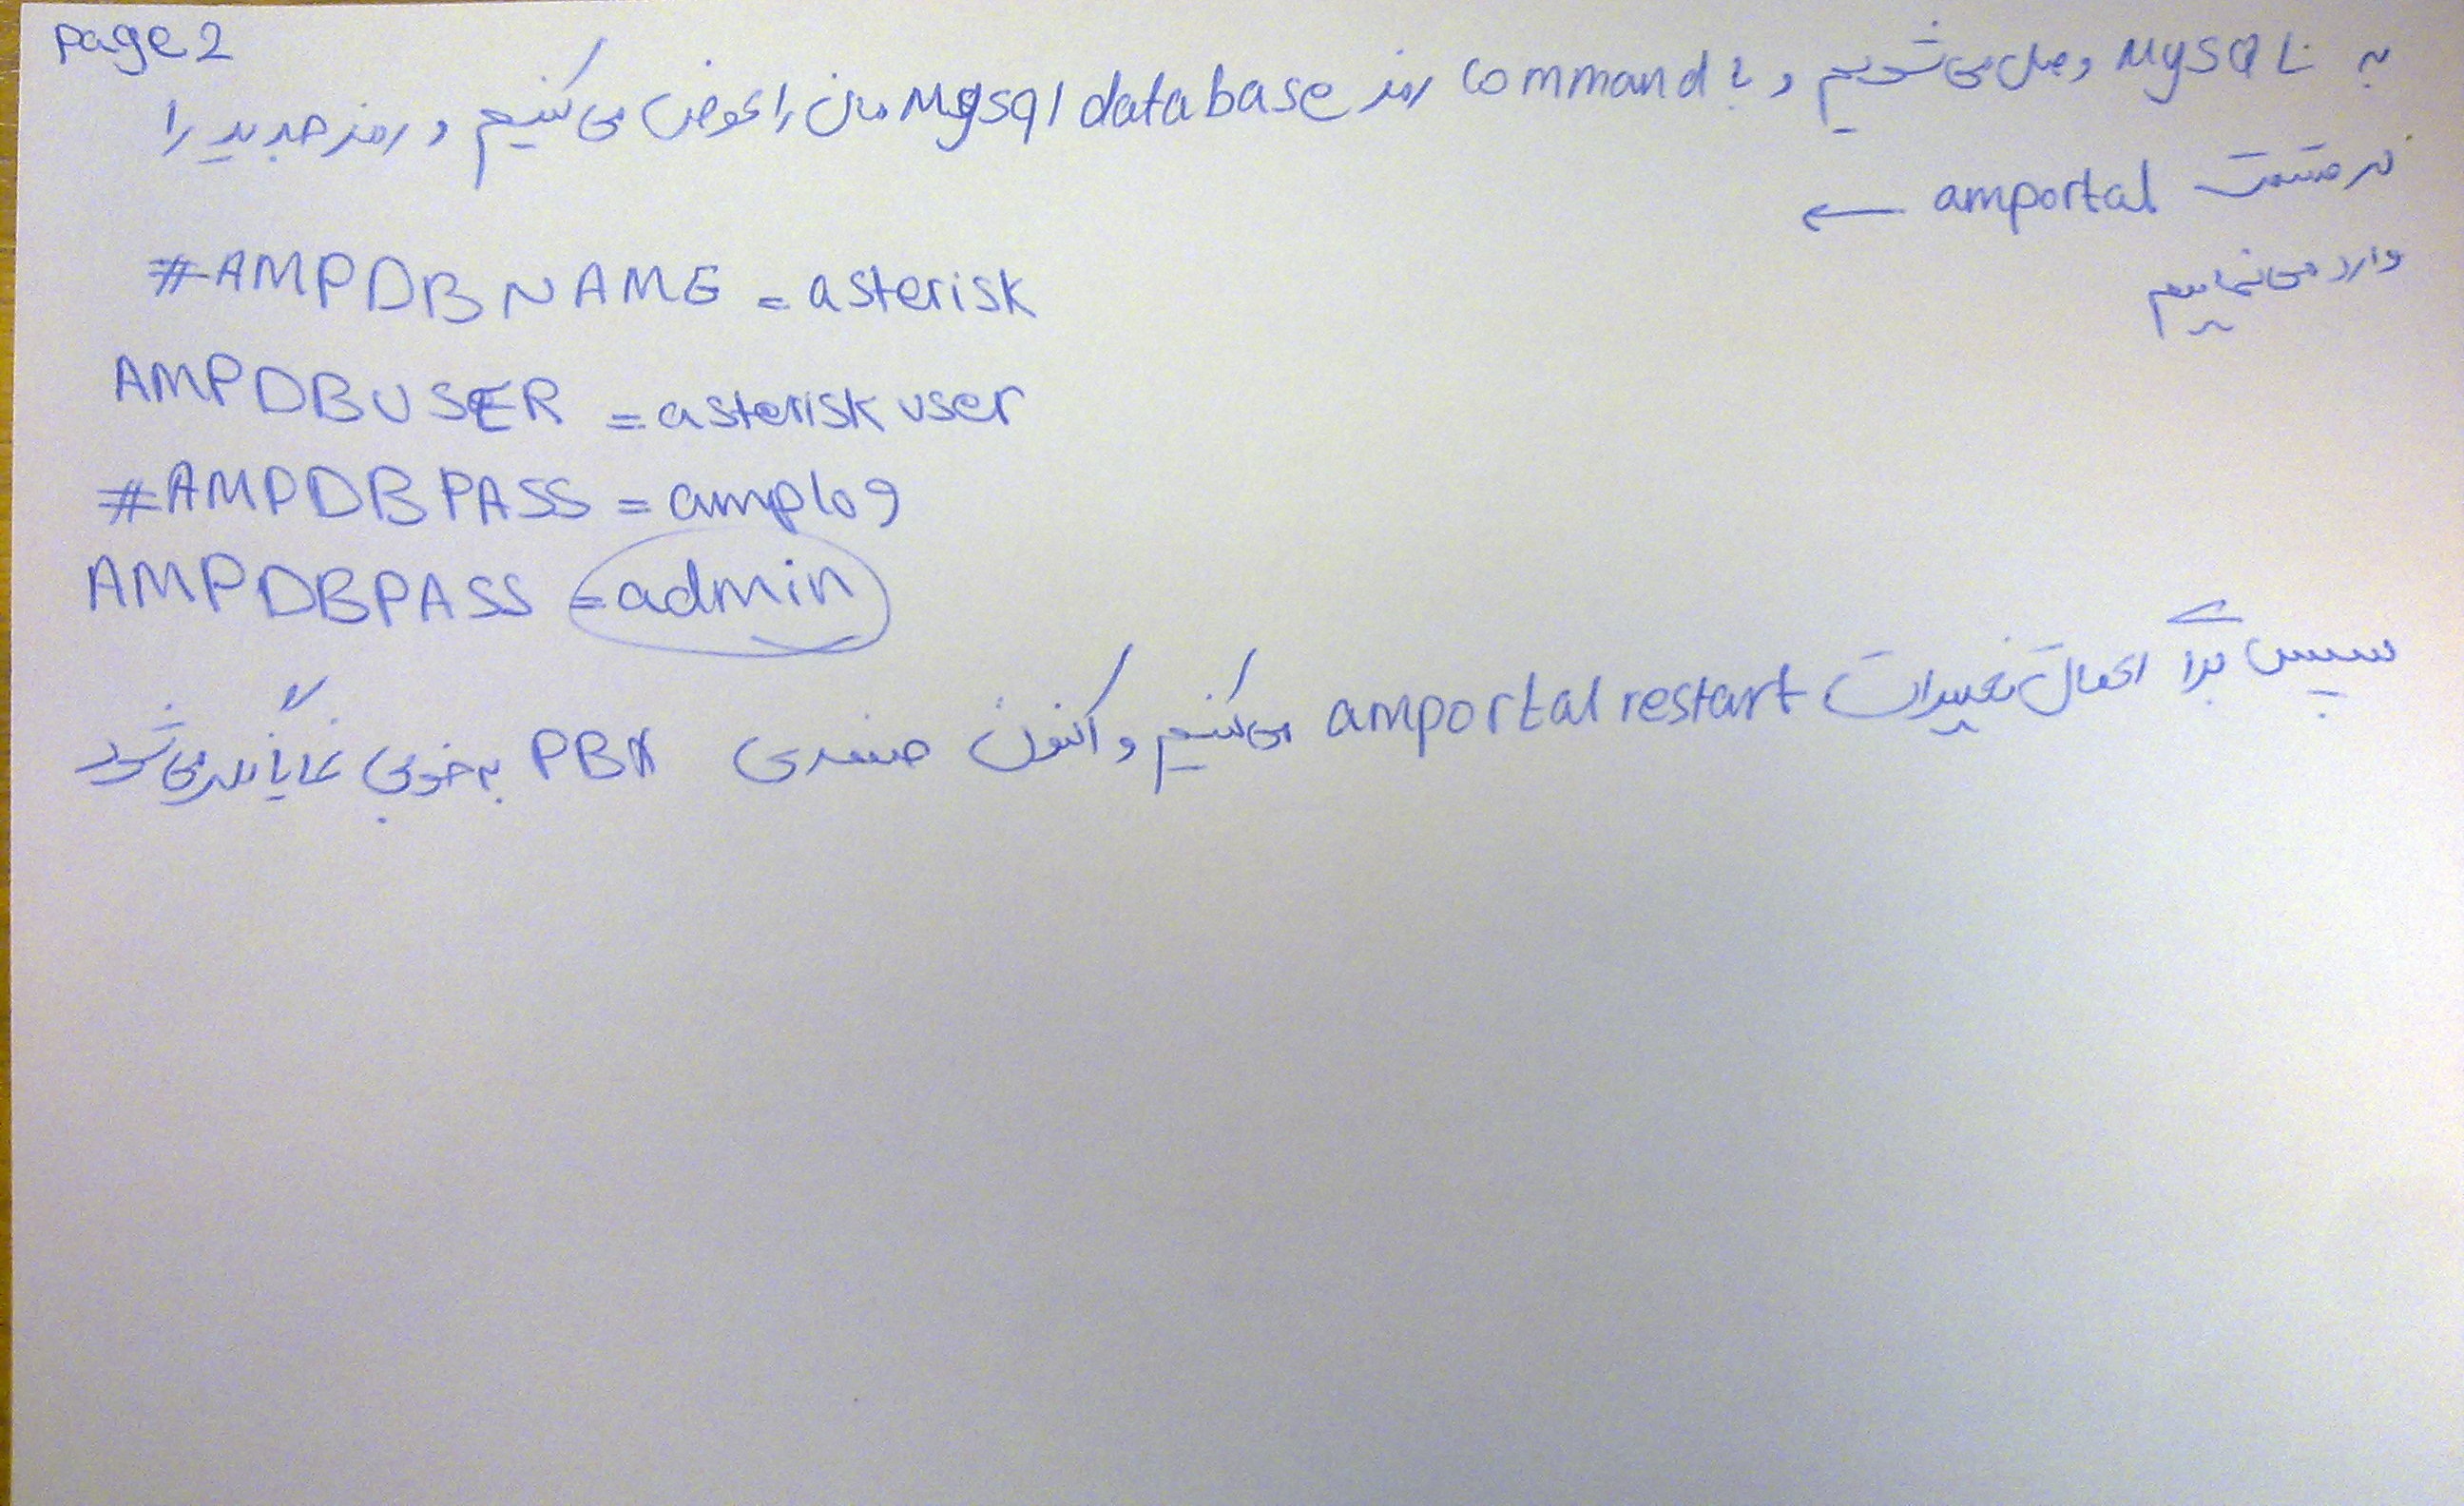 page 2
به MySQL وصل می‌شویم و با command رمز Mysql database مان را عوض می کنیم و رمز جدید را
در قسمت amportal ←
وارد می نماییم
#AMPDBNAME = asterisk
AMPDBUSER = asteriskuser
#AMPDBPASS = amplog
AMPDBPASS = admin
سپس برای اعمال تغییرات amportal restart می کنیم و اکنون صفحه‌ی PBX به خوبی نمایانگر می شود